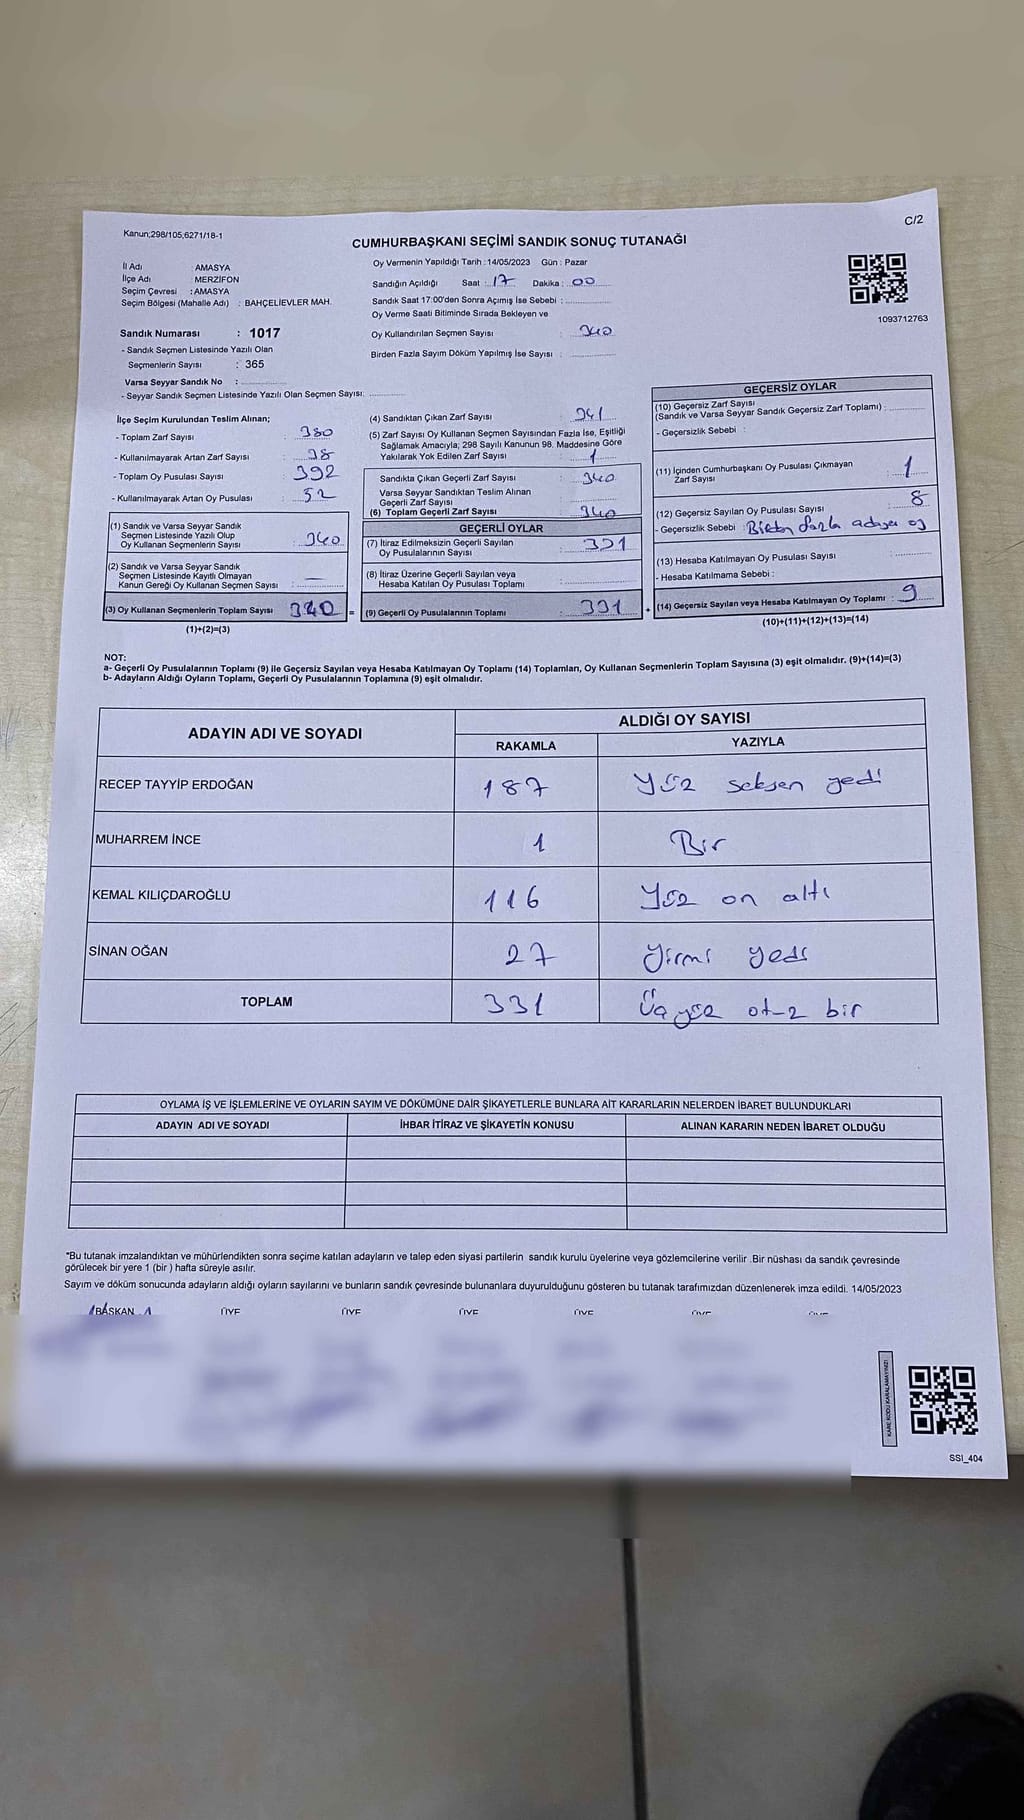 C/2
Kanun;298/105,6271/18-1
CUMHURBAŞKANI SEÇİMİ SANDIK SONUÇ TUTANAĞI
İl Adı : AMASYA
İlçe Adı : MERZİFON
Seçim Çevresi : AMASYA
Seçim Bölgesi (Mahalle Adı) : BAHÇELİEVLER MAH.
Sandık Numarası : 1017
- Sandık Seçmen Listesinde Yazılı Olan
Seçmenlerin Sayısı : 365
Varsa Seyyar Sandık No :
- Seyyar Sandık Seçmen Listesinde Yazılı Olan Seçmen Sayısı:
Oy Vermenin Yapıldığı Tarih : 14/05/2023 Gün : Pazar
Sandığın Açıldığı Saat : 17 Dakika : 00
Sandık Saat 17:00'den Sonra Açımış İse Sebebi :
Oy Verme Saati Bitiminde Sırada Bekleyen ve
Oy Kullandırılan Seçmen Sayısı : 340
Birden Fazla Sayım Döküm Yapılmış İse Sayısı :
1093712763
İlçe Seçim Kurulundan Teslim Alınan;
- Toplam Zarf Sayısı : 380
- Kullanılmayarak Artan Zarf Sayısı : 38
- Toplam Oy Pusulası Sayısı : 392
- Kullanılmayarak Artan Oy Pusulası : 52
(1) Sandık ve Varsa Seyyar Sandık
Seçmen Listesinde Yazılı Olup
Oy Kullanan Seçmenlerin Sayısı : 340
(2) Sandık ve Varsa Seyyar Sandık
Seçmen Listesinde Kayıtlı Olmayan
Kanun Gereği Oy Kullanan Seçmen Sayısı : —
(3) Oy Kullanan Seçmenlerin Toplam Sayısı 340 =
(1)+(2)=(3)
(4) Sandıktan Çıkan Zarf Sayısı : 341
(5) Zarf Sayısı Oy Kullanan Seçmen Sayısından Fazla İse, Eşitliği
Sağlamak Amacıyla; 298 Sayılı Kanunun 98. Maddesine Göre
Yakılarak Yok Edilen Zarf Sayısı : 1
Sandıkta Çıkan Geçerli Zarf Sayısı : 340
Varsa Seyyar Sandıktan Teslim Alınan
Geçerli Zarf Sayısı
(6) Toplam Geçerli Zarf Sayısı : 340
GEÇERLİ OYLAR
(7) İtiraz Edilmeksizin Geçerli Sayılan
Oy Pusulalarının Sayısı : 331
(8) İtiraz Üzerine Geçerli Sayılan veya
Hesaba Katılan Oy Pusulası Toplamı :
(9) Geçerli Oy Pusulalarının Toplamı : 331 +
GEÇERSİZ OYLAR
(10) Geçersiz Zarf Sayısı
(Sandık ve Varsa Seyyar Sandık Geçersiz Zarf Toplamı) :
- Geçersizlik Sebebi :
(11) İçinden Cumhurbaşkanı Oy Pusulası Çıkmayan
Zarf Sayısı : 1
(12) Geçersiz Sayılan Oy Pusulası Sayısı : 8
- Geçersizlik Sebebi : Birden fazla adaya oy
(13) Hesaba Katılmayan Oy Pusulası Sayısı :
- Hesaba Katılmama Sebebi :
(14) Geçersiz Sayılan veya Hesaba Katılmayan Oy Toplamı : 9
(10)+(11)+(12)+(13)=(14)
NOT:
a- Geçerli Oy Pusulalarının Toplamı (9) ile Geçersiz Sayılan veya Hesaba Katılmayan Oy Toplamı (14) Toplamları, Oy Kullanan Seçmenlerin Toplam Sayısına (3) eşit olmalıdır. (9)+(14)=(3)
b- Adayların Aldığı Oyların Toplamı, Geçerli Oy Pusulalarının Toplamına (9) eşit olmalıdır.
ADAYIN ADI VE SOYADI ALDIĞI OY SAYISI
RAKAMLA YAZIYLA
RECEP TAYYİP ERDOĞAN 187 Yüz seksen yedi
MUHARREM İNCE 1 Bir
KEMAL KILIÇDAROĞLU 116 Yüz on altı
SİNAN OĞAN 27 Yirmi yedi
TOPLAM 331 Üçyüz otuz bir
OYLAMA İŞ VE İŞLEMLERİNE VE OYLARIN SAYIM VE DÖKÜMÜNE DAİR ŞİKAYETLERLE BUNLARA AİT KARARLARIN NELERDEN İBARET BULUNDUKLARI
ADAYIN ADI VE SOYADI İHBAR İTİRAZ VE ŞİKAYETİN KONUSU ALINAN KARARIN NEDEN İBARET OLDUĞU
"Bu tutanak imzalandıktan ve mühürlendikten sonra seçime katılan adayların ve talep eden siyasi partilerin sandık kurulu üyelerine veya gözlemcilerine verilir .Bir nüshası da sandık çevresinde
görülecek bir yere 1 (bir ) hafta süreyle asılır.
Sayım ve döküm sonucunda adayların aldığı oyların sayılarını ve bunların sandık çevresinde bulunanlara duyurulduğunu gösteren bu tutanak tarafımızdan düzenlenerek imza edildi. 14/05/2023
BAŞKAN ÜYE ÜYE ÜYE ÜYE ÜYE ÜYE
KARE KODU KARALAMAYINIZ!
SSI_404